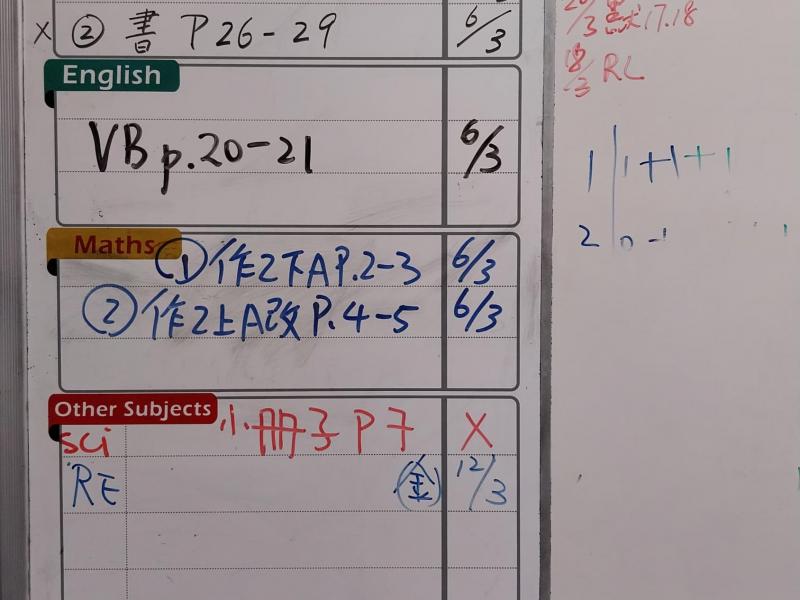 x ② 書 P26-29 6/3
English
VB p.20-21 6/3
Maths
① 作2下A P.2-3 6/3
② 作2上A改 P.4-5 6/3
Other Subjects
sci 小冊子 P7 X
RE (金) 12/3
17.18
18/3 RL
1 1+1+1
2 0-1